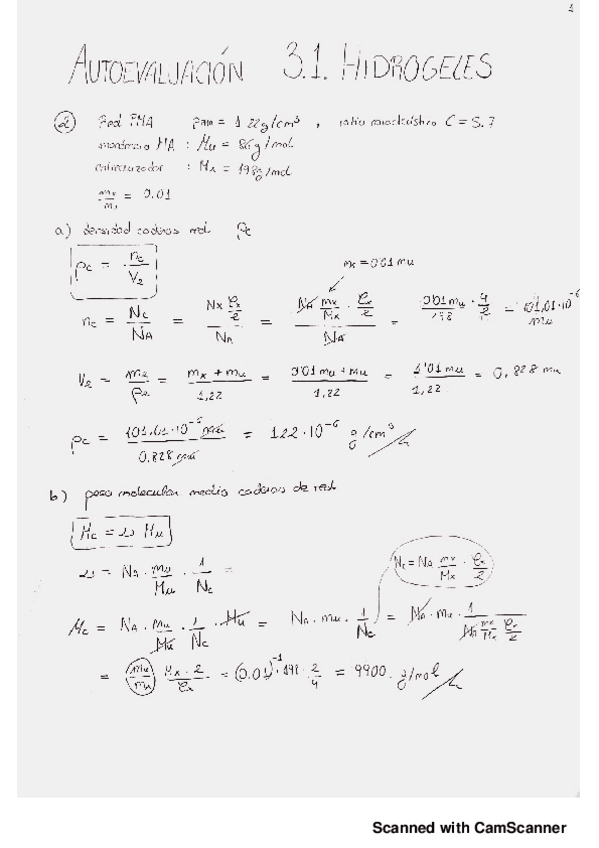 1
AUTOEVALUACIÓN 3.1. HIDROGELES
② Red PMA ρ = 1'22 g/cm³, ratio característico C = 5.7
monómero MA : Mu = 86 g/mol
entrecruzador : Mx = 198 g/mol
mx/mu = 0.01
a) densidad cadenas red ρc
mx = 0'01 mu
ρc = nc/V2
nc = Nc/NA = Nx ℓx/2 / NA = NA mx/Mx · ℓx/2 / NA = 0'01 mu/198 · 4/2 = 101,01·10⁻⁶ mu
V2 = m2/ρ2 = mx + mu/1,22 = 0'01 mu + mu/1,22 = 1'01 mu/1,22 = 0,828 mu
ρc = 101,01·10⁻⁶ mu/0.828 mu = 122·10⁻⁶ g/cm³
b) peso molecular medio cadenas de red
Mc = ν Mu
Nc = NA · mx/Mx · ℓx/2
ν = NA · mu/Mu · 1/Nc =
Mc = NA · mu/Mu · 1/Nc · Mu = NA · mu · 1/Nc = NA · mu · 1/NA mx/Mx ℓx/2
= mu/mu Mx · 2/ℓx = (0.01)⁻¹ · 198 · 2/4 = 9900 g/mol
Scanned with CamScanner